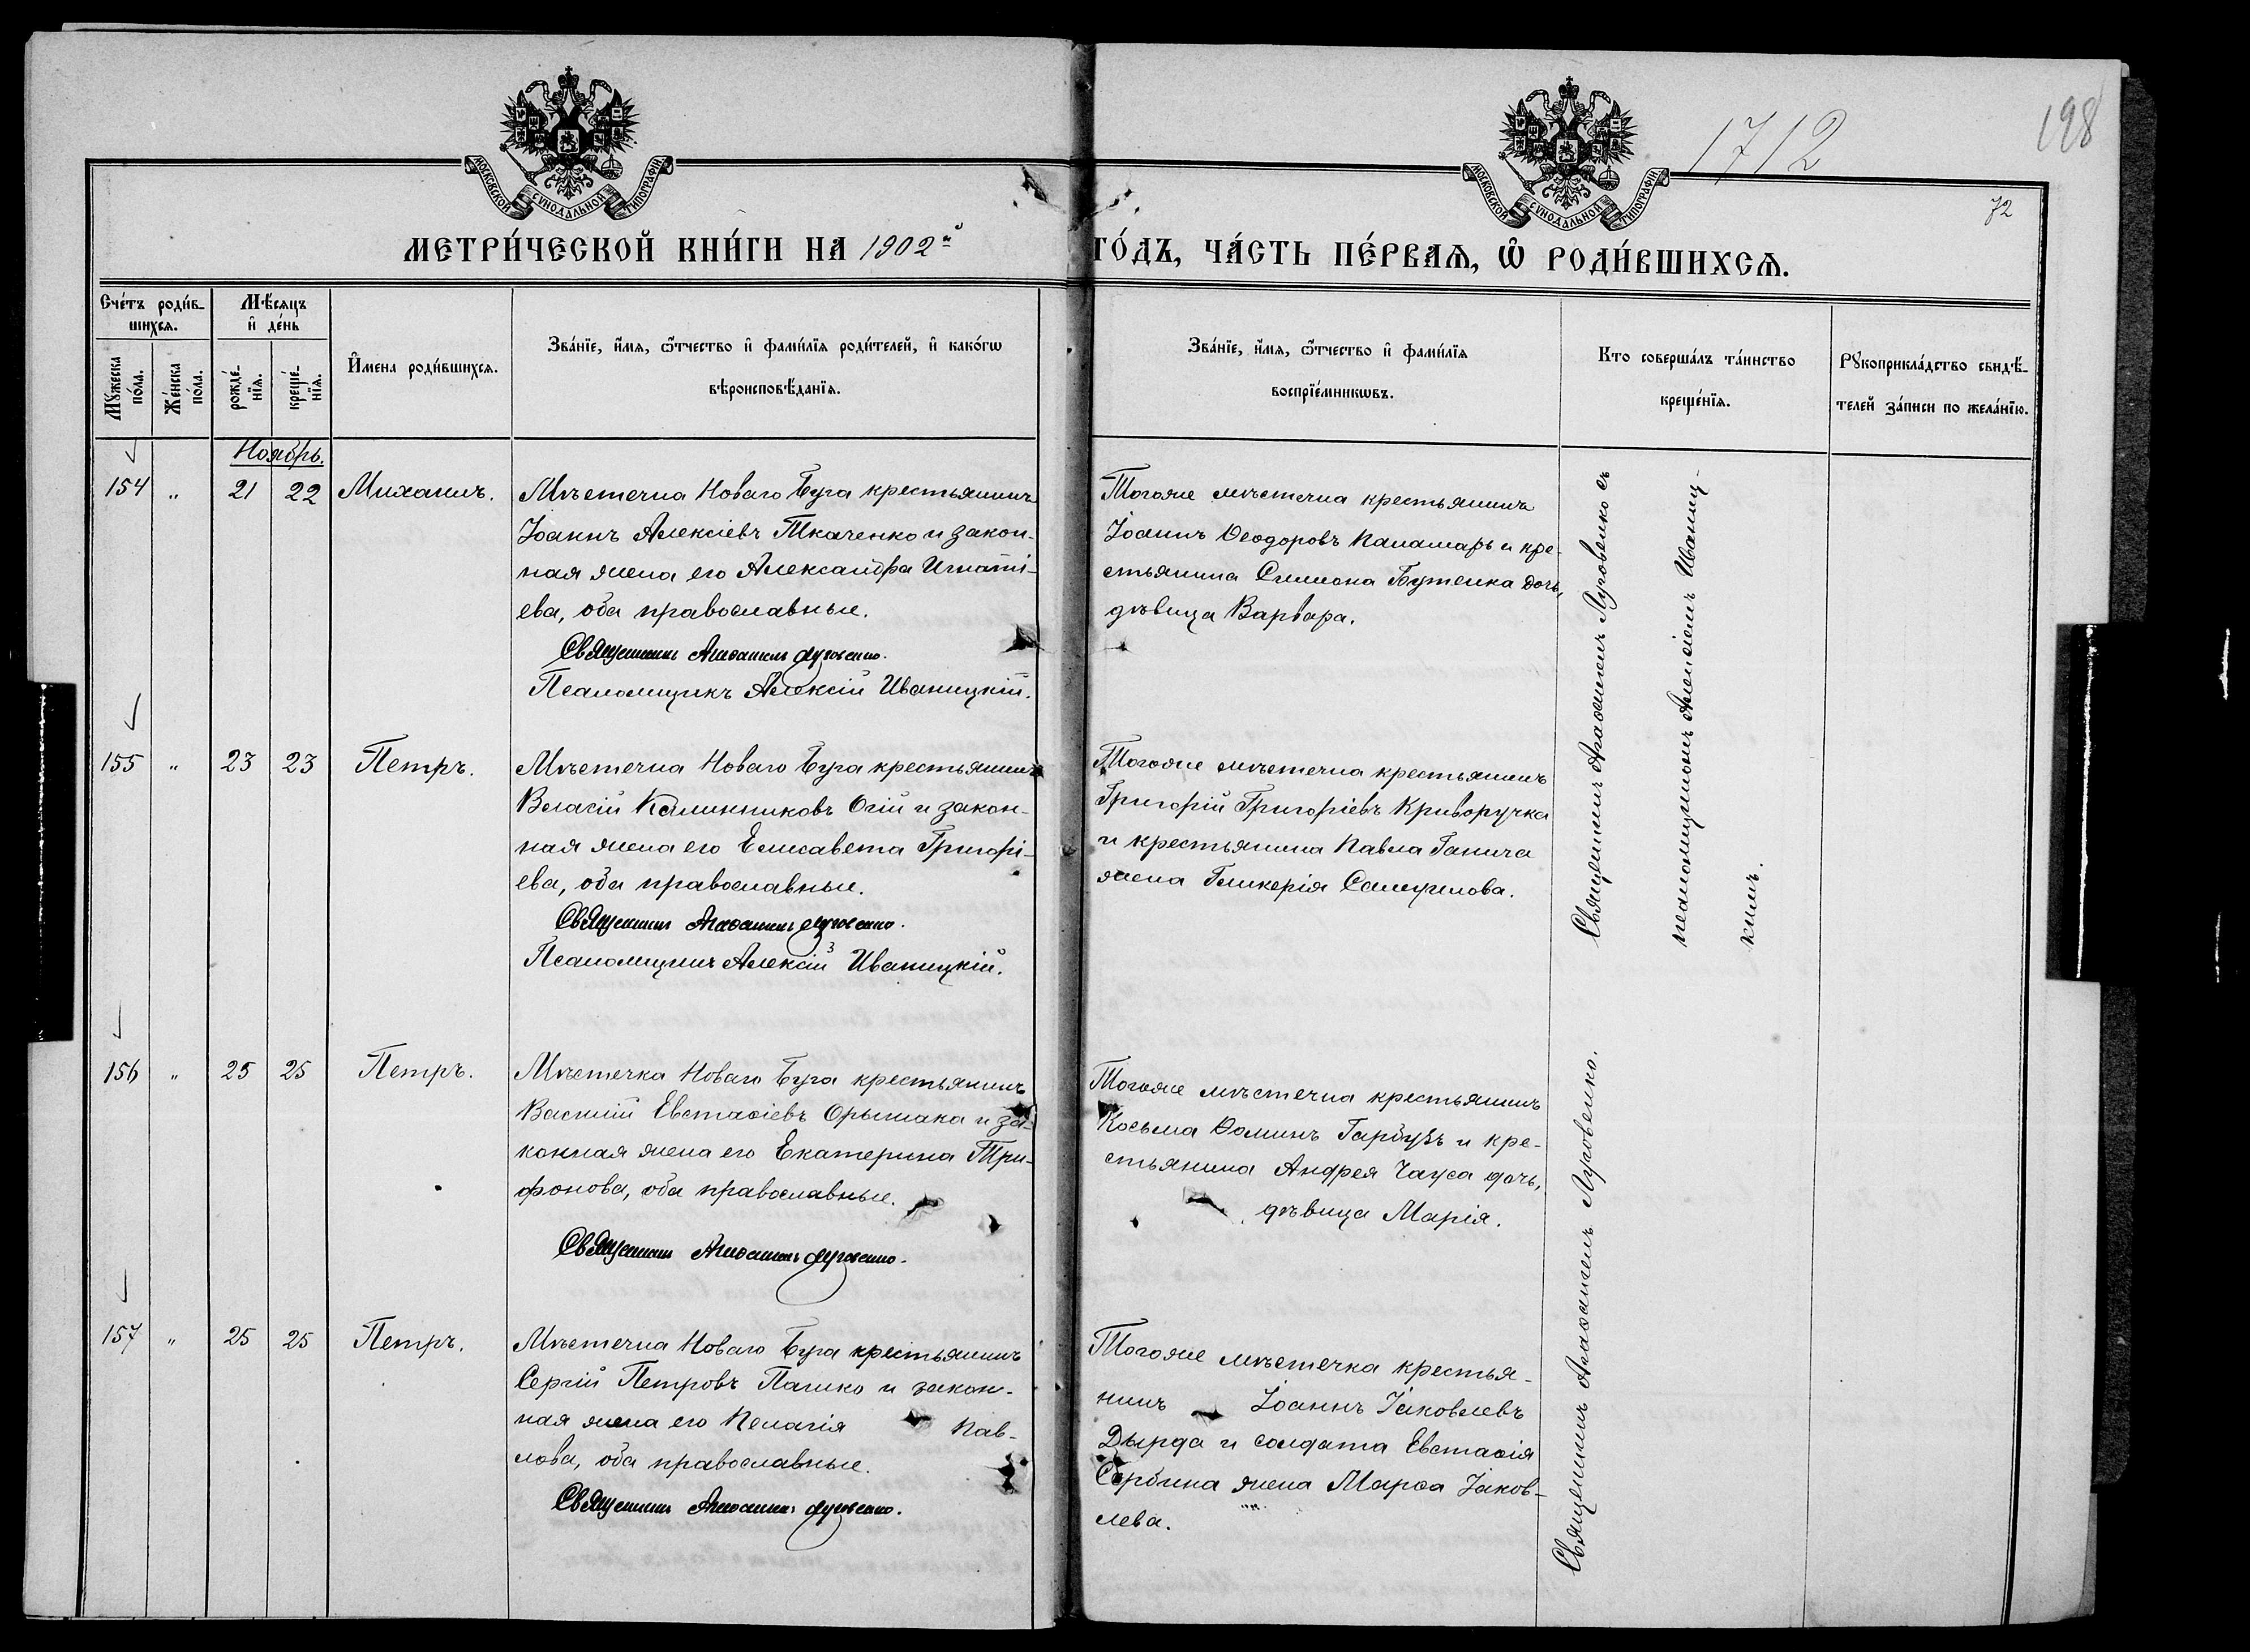 1712
198
72
МОСКОВСКОЙ СѴНОДАЛЬНОЙ ТИПОГРАФІИ
МОСКОВСКОЙ СѴНОДАЛЬНОЙ ТИПОГРАФІИ
МЕТРИ́ЧЕСКОЙ КНИ́ГИ НА 1902й
ГО́ДЪ, ЧА́СТЬ ПЕ́РВАѦ, Ѡ҆ РОДИ́ВШИХСѦ.
Сче́тъ роди́в-
шихсѧ.
Мꙋ́жеска по́ла.
Же́нска по́ла.
Мѣ́сѧцъ
и҆ де́нь
рожде́-нїѧ.
креще́-нїѧ.
И҆мена роди́вшихсѧ.
Зва́нїе, и҆́мѧ, ѻ҆́тчество и҆ фами́лїѧ роди́телей, и҆ како́гѡ
вѣроисповѣ́данїѧ.
Зва́нїе, и҆́мѧ, ѻ҆́тчество и҆ фами́лїѧ
воспрїе́мникѡвъ.
Кто соверша́лъ та́инство
креще́нїѧ.
Рꙋкоприкла́дство свидѣ́-
телей за́писи по жела́нїю.
Ноябрь.
154 " 21 22 Михаилъ.
Мѣстечка Новаго Буга крестьянинъ
Іоаннъ Алексіевъ Ткаченко и закон-
ная жена его Александра Игнаті-
ева, оба православные.
Священникъ Агаѳангелъ Луговенко.
Псаломщикъ Алексій Иваницкій.
Тогоже мѣстечка крестьянинъ
Іоаннъ Ѳеодоровъ Паламарь и кре-
стьянина Симеона Бутенка дочь,
дѣвица Варвара.
Священникъ Агаѳангелъ Луговенко съ
псаломщикомъ Алексіемъ Иваниц-
кимъ.
155 " 23 23 Петръ.
Мѣстечка Новаго Буга крестьянинъ
Власій Калинниковъ Огій и закон-
ная жена его Елисавета Григорі-
ева, оба православные.
Священникъ Агаѳангелъ Луговенко.
Псаломщикъ Алексій Иваницкій.
Тогоже мѣстечка крестьянинъ
Григорій Григоріевъ Криворучка
и крестьянина Павла Ганича
жена Гликерія Самуилова.
156 " 25 25 Петръ.
Мѣстечка Новаго Буга крестьянинъ
Василій Евстаѳіевъ Орышака и за-
конная жена его Екатерина Три-
фонова, оба православные.
Священникъ Агаѳангелъ Луговенко.
Тогоже мѣстечка крестьянинъ
Косьма Ѳоминъ Гарбузъ и кре-
стьянина Андрея Чауса дочь,
дѣвица Марія.
Священникъ Агаѳангелъ Луговенко.
157 " 25 25 Петръ.
Мѣстечка Новаго Буга крестьянинъ
Сергій Петровъ Пашко и закон-
ная жена его Пелагія Пав-
лова, оба православные.
Священникъ Агаѳангелъ Луговенко.
Тогоже мѣстечка крестья-
нинъ Іоаннъ Іаковлевъ
Дырда и солдата Евстаѳія
Сербина жена Марѳа Іаков-
лева.